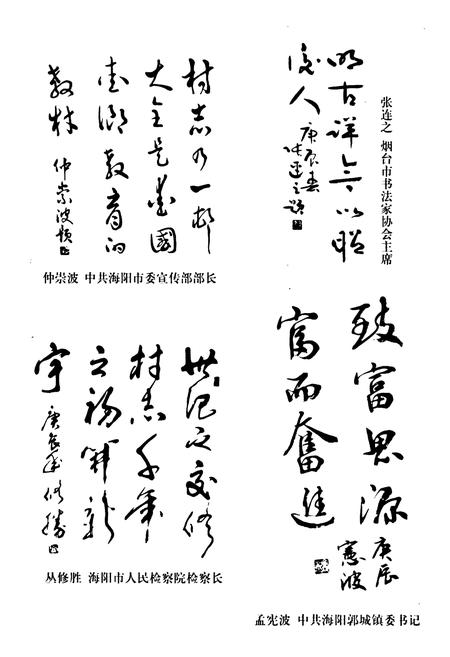 村志乃一部
大全是爱國
爱鄉教育的
教材
仲崇波题
仲崇波 中共海阳市委宣传部部长
明古详今以昭
後人
庚辰春
连之题
张连之 烟台市书法家协会主席
世纪之交修
村志千年
之初辟新
宇
庚辰年修勝
丛修胜 海阳市人民检察院检察长
致富思源
富而奮進
庚辰
憲波
孟宪波 中共海阳郭城镇委书记